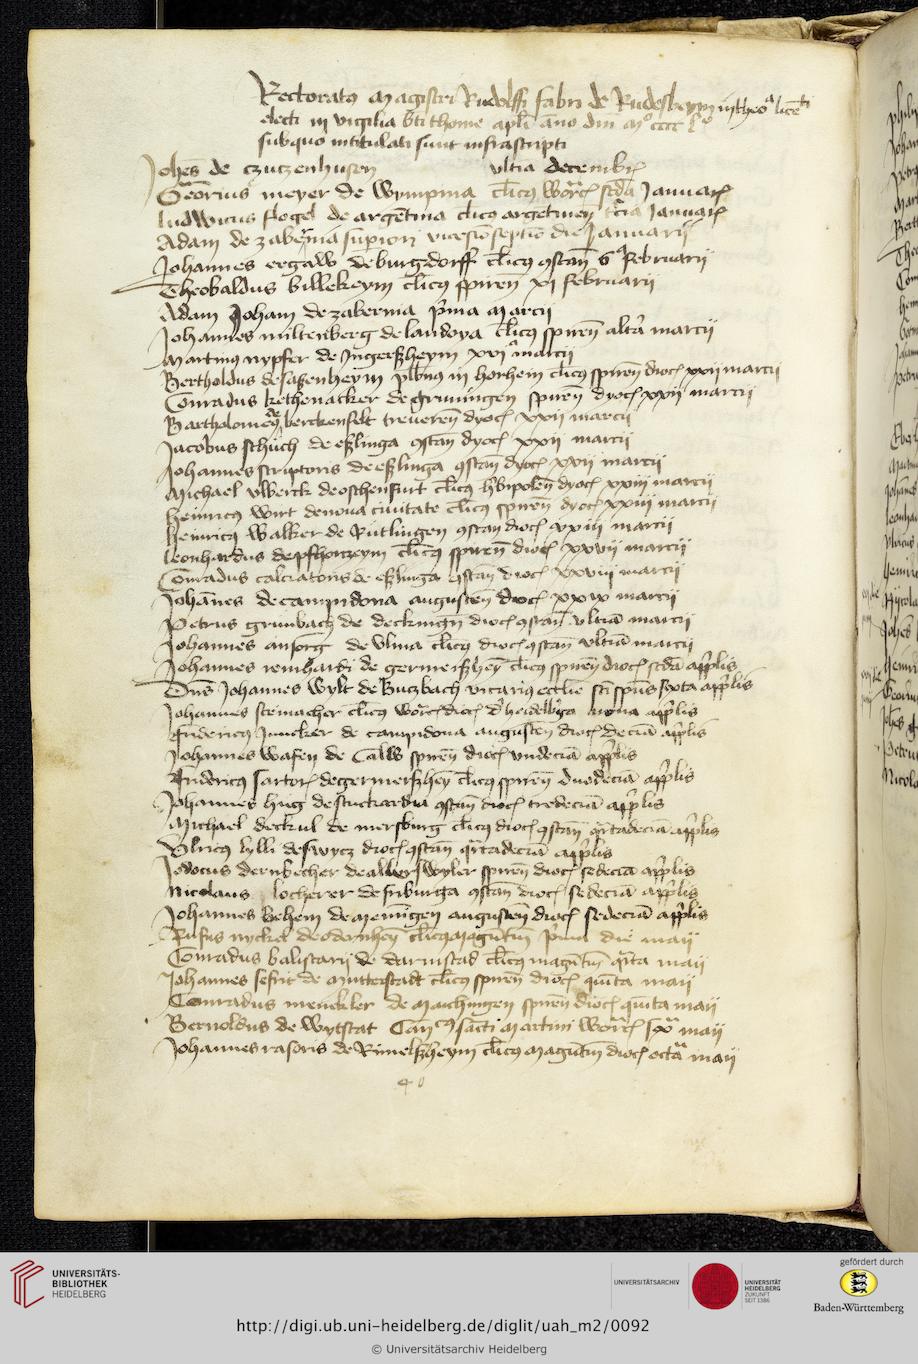 Rectoratus magistri Rudolffi fabri de Rudeßheym in theo^a licēti
electi in vigilia bti thome apli āno dm M° cccc l^mo
sub quo intitulati sunt infrascripti
Johēs de czutzenhusen ultīa decembris
Georius meyer de wympina clicus worc scda Januarii
ludwicus flegel de argētina clicus argetineñ tcia Januarii
Adam de zabernia supiori vicesīoseptīo die Januarii
Johannes ergaw de burgdorff clicus 9stañ 6ᵃ februarii
Theobaldus billekeym clicus spireñ xi februarii
Adam Joham de zabernia pma Marcii
Johannes miltenberg de landoya clicus spireñ altā marcii
martinus nypfer de Ingerßheym xvi marcii
Bertholdus de saßenheym plbnus in horhem clicus spireñ dioc xxii marcii
Conradus kethenacker de gruningen spireñ dyoc xxii marcii
Bartholomeus berckenfelt trevereñ dyoc xxii marcii
Jacobus schuch de eßlinga 9stañ dyoc xxii marcii
Johannes scriptoris de eßlinga 9stañ dyoc xxii marcii
Michael ulberti de ochsenfurt clicus hbipoleñ dyoc xxiii marcii
heinricus wirt de nova civitate clicus spireñ dyoc xxiii marcii
heinricus walker de Rutlingen 9stañ dioc xxiii marcii
leonhardus de pfhorzeym clicus spireñ dioc xxvii marcii
Conradus calciatoris de eßlinga 9stañ dioc xxviii marcii
Johānes de campidona augusteñ dioc xxix marcii
Petrus grunbach de deckingñ dioc 9stañ ultīa marcii
Johannes ansorg de Ulma clicus dioc 9stañ ultīa marcii
Johannes reinhardi de germerßheȳ clicus spireñ dioc scdā aprlis
Dns Johannes wylt de Butzbach vicarius ecclie sti spus sexta aprlis
Johannes stemacher clicus worc dioc d heidelbga nona aprlis
fridericus Juncker de campidona augusteñ dioc deciā aprlis
Johannes wafen de Calw spireñ dioc undeciā aprlis
fridricus sartoris de germerßheȳ clicus spireñ duodeciā aprlis
Johannes hug de stuckardia 9stañ dioc tredeciā aprlis
Michael deckul de mersburg clicus dioc 9stañ qrtadeciā aprlis
Ulricus lylli de swycz dioc 9stañ qrtadeciā aprlis
Jodocus dernbecher de allwerswyler spireñ dioc sedeciā aprlis
Nicolaus locherer de friburga 9stañ dioc sedeciā aprlis
Johannes behem de memīgen augusteñ dioc sedeciā aprlis
Rufus nyckel de odernheȳ clicus magūtiñ pma die maii
Conradus balistarii de darmstad clicus magūtiñ qrta maii
Johannes sefrit de mutterstadt clicus spireñ dioc quīta maii
Conradus menckler de Maichingen spireñ dioc quīta maii
Bernoldus de wytstat Canᶜᵘˢ sancti Martini worc sexta maii
Johannes rasoris de Rimelßheym clicus magūtiñ dioc octā maii
40
UNIVERSITÄTS-
BIBLIOTHEK
HEIDELBERG
UNIVERSITÄTSARCHIV
UNIVERSITÄT
HEIDELBERG
ZUKUNFT
SEIT 1386
gefördert durch
Baden-Württemberg
http://digi.ub.uni-heidelberg.de/diglit/uah_m2/0092
© Universitätsarchiv Heidelberg